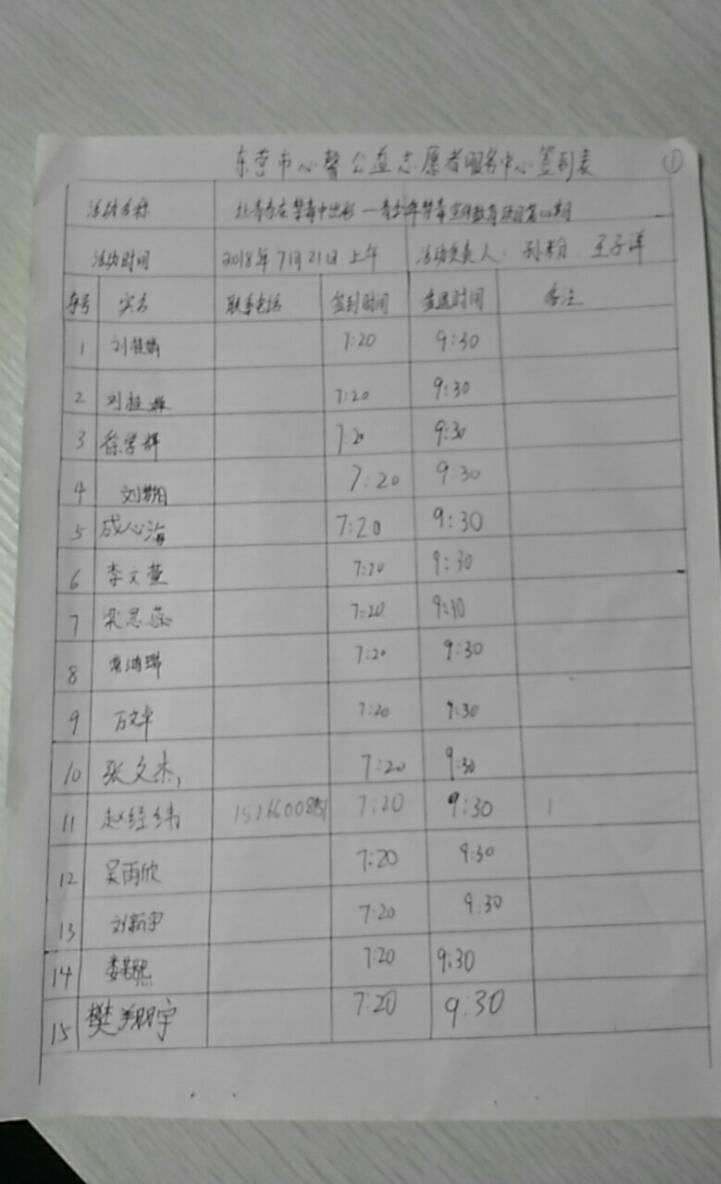 东营市心馨公益志愿者服务中心签到表 ①
活动名称 让青春在禁毒中出彩—青少年禁毒宣传教育项目第四期
活动时间 2018年7月21日上午 活动负责人:孙粉 王子洋
序号 实名 联系电话 签到时间 签退时间 备注
1 7:20 9:30
2 7:20 9:30
3 徐学辉 7:20 9:30
4 7:20 9:30
5 成心海 7:20 9:30
6 李文萱 7:20 9:30
7 梁思蕊 7:20 9:30
8 7:20 9:30
9 7:20 9:30
10 张文杰 7:20 9:30
11 赵经纬 7:20 9:30
12 吴雨欣 7:20 9:30
13 刘新宇 7:20 9:30
14 7:20 9:30
15 樊翔宇 7:20 9:30